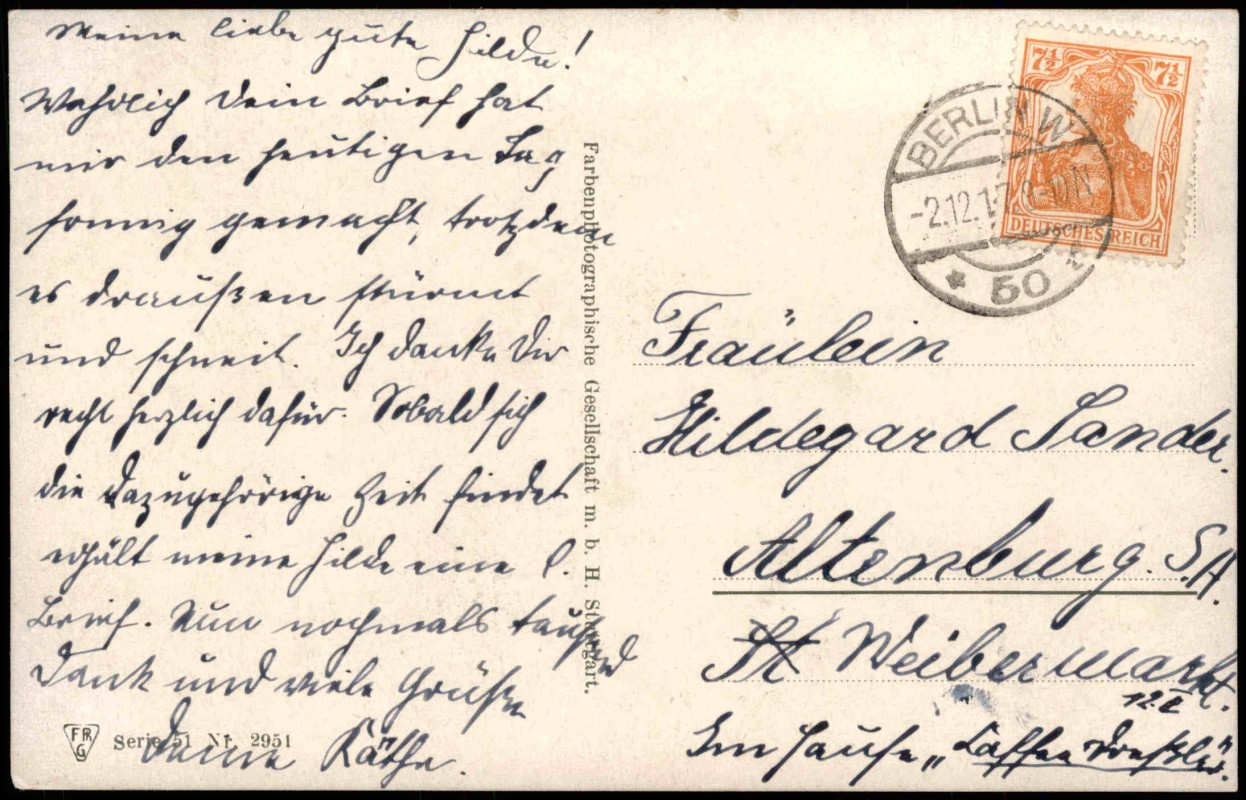 Meine liebe gute Hilde!
Wahrlich Dein Brief hat
mir den heutigen Tag
sonnig gemacht, trotzdem
es draußen stürmt
und schneit. Ich danke Dir
recht herzlich dafür. Sobald sich
die dazugehörige Zeit findet
erhält meine Hilde eine l.
Brief. Nun nochmals tausend
Dank und viele Grüße
Deine Käthe.
FRG
Serie 51 Nr. 2951
Farbenphotographische Gesellschaft m. b. H. Stuttgart.
7½ 7½
DEUTSCHES REICH
BERLIN W
-2.12.17.
* 50
Fräulein
Hildegard Sander.
Altenburg. S.A.
Weibermarkt.
12.I
Im Hause „Kaffee